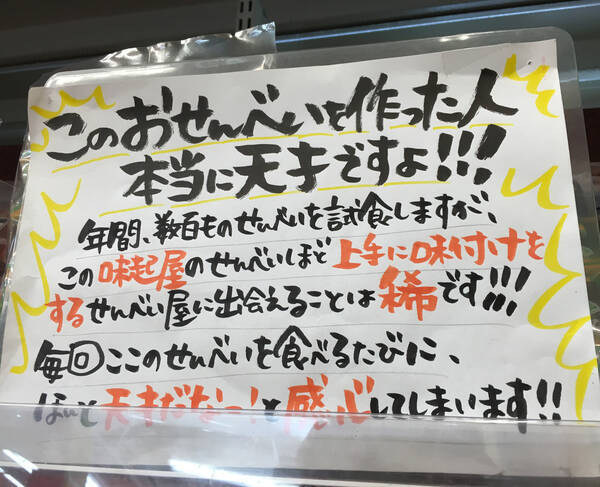 このおせんべいを作った人
本当に天才ですよ!!!
年間、数百ものせんべいを試食しますが、
この味起屋のせんべいほど上手に味付けを
するせんべい屋に出会えることは稀です!!!
毎回ここのせんべいを食べるたびに、
ほんと天才だなっ!と感心してしまいます!!